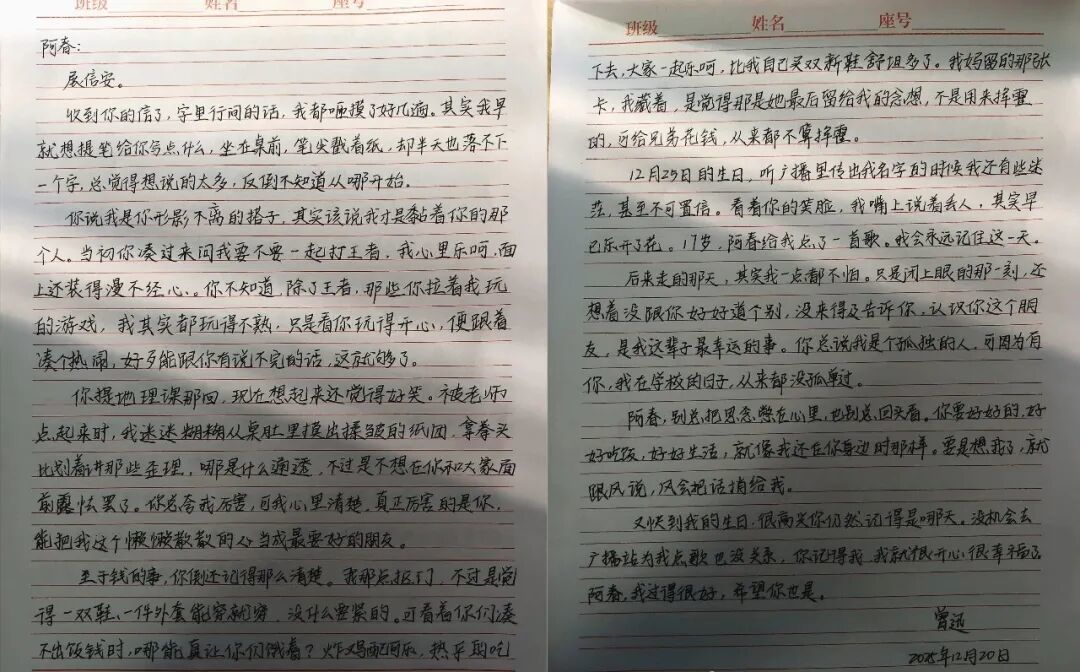 班级 姓名 座号
阿春：
展信安。
收到你的信了，字里行间的话，我都咂摸了好几遍。其实我早
就想提笔给你写点什么，坐在桌前，笔尖戳着纸，却半天也落不下
一个字，总觉得想说的太多，反倒不知道从哪开始。
你说我是你形影不离的搭子，其实该说我才是黏着你的那
个人。当初你凑过来问我要不要一起打王者，我心里乐呵，面
上还装得漫不经心。你不知道，除了王者，那些你拉着我玩
的游戏，我其实都玩得不熟，只是看你玩得开心，便跟着
凑个热闹，好歹能跟你有说不完的话，这就够了。
你提地理课那回，现在想起来还觉得好笑。被老师
点起来时，我迷迷糊糊从桌肚里摸出揉皱的纸团，拿拳头
比划着讲那些歪理，哪是什么通透，不过是不想在你和大家面
前露怯罢了。你总夸我厉害，可我心里清楚，真正厉害的是你，
能把我这个懒懒散散的人当成最要好的朋友。
至于钱的事，你倒还记得那么清楚。我那点抠门，不过是觉
得一双鞋、一件外套能穿就穿，没什么要紧的。可看着你们凑
不出饭钱时，哪能真让你们饿着？炸鸡配可乐，热乎的吃
班级 姓名 座号
下去，大家一起乐呵，比我自己买双新鞋舒坦多了。我妈留的那张
卡，我藏着，是觉得那是她最后留给我的念想，不是用来挥霍
的，可给兄弟花钱，从来都不算挥霍。
12月25日的生日，听广播里传出我名字的时候我还有些迷
茫，甚至不可置信。看着你的笑脸，我嘴上说着丢人，其实早
已乐开了花。17岁，阿春给我点了一首歌。我会永远记住这一天。
后来走的那天，其实我一点都不怕。只是闭上眼的那一刻，还
想着没跟你好好道个别，没来得及告诉你，认识你这个朋
友，是我这辈子最幸运的事。你总说我是个孤独的人，可因为有
你，我在学校的日子，从来都没孤单过。
阿春，别总把思念憋在心里，也别总回头看。你要好好的，好
好吃饭，好好生活，就像我还在你身边时那样。要是想我了，就
跟风说，风会把话捎给我。
又快到我的生日，很高兴你仍然记得是哪天。没机会去
广播站为我点歌也没关系，你记得我，我就很开心很幸福了。
阿春，我过得很好，希望你也是。
曾迅
2025年12月20日